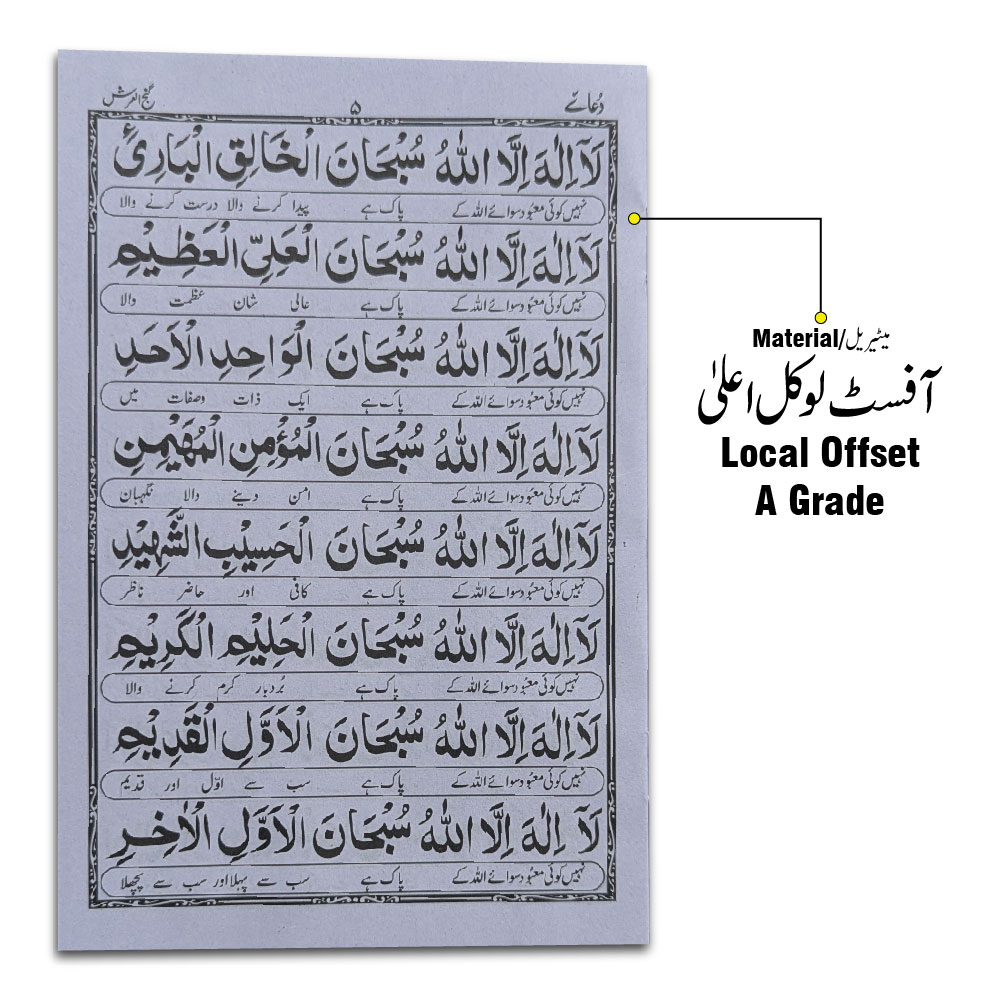 دُعائے ۵ گنج العرش
لَآ اِلٰهَ اِلَّا اللّٰهُ سُبْحَانَ الْخَالِقِ الْبَارِئِ
نہیں کوئی معبُود سوائے اللہ کے پاک ہے پیدا کرنے والا درست کرنے والا
لَآ اِلٰهَ اِلَّا اللّٰهُ سُبْحَانَ الْعَلِيِّ الْعَظِيْمِ
نہیں کوئی معبُود سوائے اللہ کے پاک ہے عالی شان عظمت والا
لَآ اِلٰهَ اِلَّا اللّٰهُ سُبْحَانَ الْوَاحِدِ الْاَحَدِ
نہیں کوئی معبُود سوائے اللہ کے پاک ہے ایک ذات وصفات میں
لَآ اِلٰهَ اِلَّا اللّٰهُ سُبْحَانَ الْمُؤْمِنِ الْمُهَيْمِنِ
نہیں کوئی معبُود سوائے اللہ کے پاک ہے امن دینے والا نگہبان
لَآ اِلٰهَ اِلَّا اللّٰهُ سُبْحَانَ الْحَسِيْبِ الشَّهِيْدِ
نہیں کوئی معبُود سوائے اللہ کے پاک ہے کافی اور حاضر ناظر
لَآ اِلٰهَ اِلَّا اللّٰهُ سُبْحَانَ الْحَلِيْمِ الْكَرِيْمِ
نہیں کوئی معبُود سوائے اللہ کے پاک ہے بُردبار کرم کرنے والا
لَآ اِلٰهَ اِلَّا اللّٰهُ سُبْحَانَ الْاَوَّلِ الْقَدِيْمِ
نہیں کوئی معبُود سوائے اللہ کے پاک ہے سب سے اوّل اور قدیم
لَآ اِلٰهَ اِلَّا اللّٰهُ سُبْحَانَ الْاَوَّلِ الْاٰخِرِ
نہیں کوئی معبُود سوائے اللہ کے پاک ہے سب سے پہلا اور سب سے پچھلا
Material/میٹیریل
آفسٹ لوکل اعلیٰ
Local Offset
A Grade